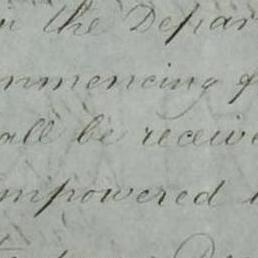 in the Depar
mmencing
all be receive
mpowered